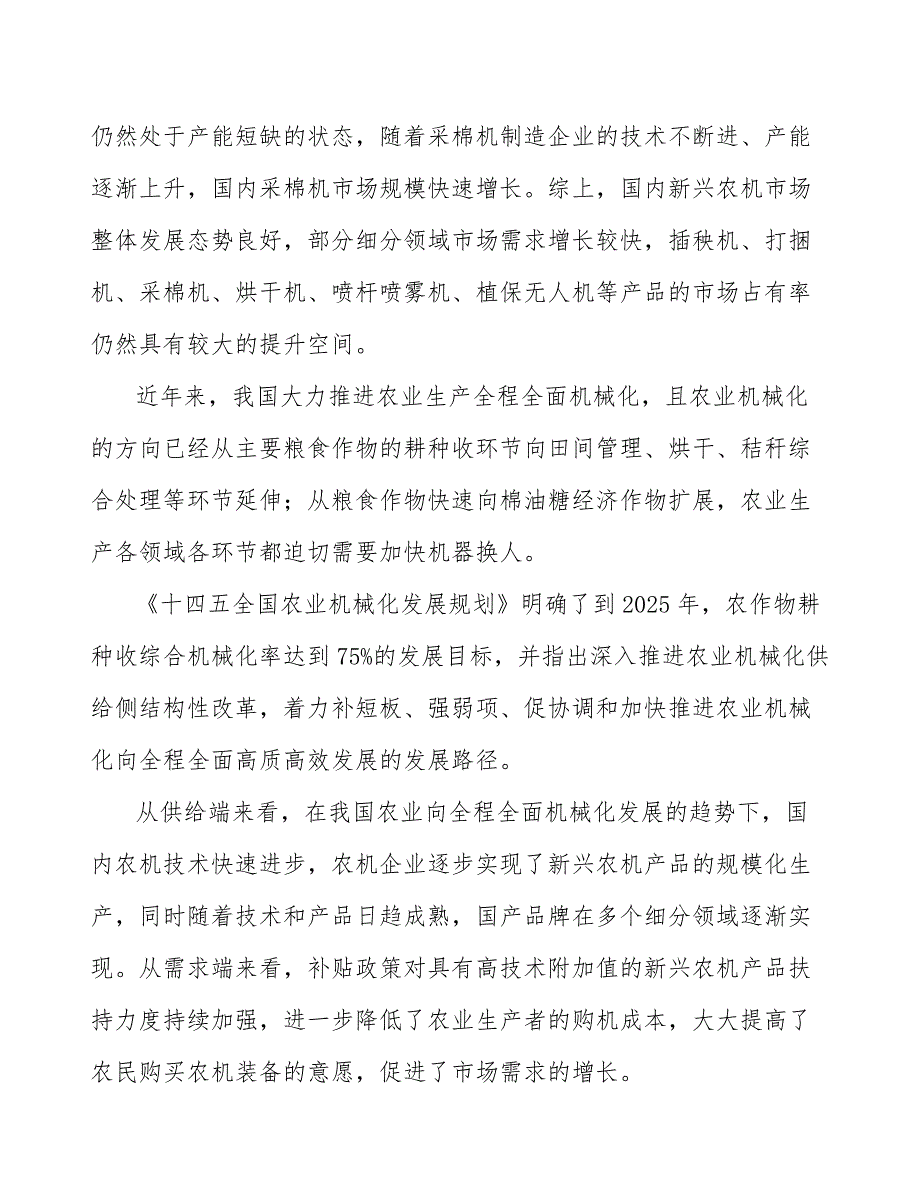 仍然处于产能短缺的状态，随着采棉机制造企业的技术不断进、产能
逐渐上升，国内采棉机市场规模快速增长。综上，国内新兴农机市场
整体发展态势良好，部分细分领域市场需求增长较快，插秧机、打捆
机、采棉机、烘干机、喷杆喷雾机、植保无人机等产品的市场占有率
仍然具有较大的提升空间。
近年来，我国大力推进农业生产全程全面机械化，且农业机械化
的方向已经从主要粮食作物的耕种收环节向田间管理、烘干、秸秆综
合处理等环节延伸；从粮食作物快速向棉油糖经济作物扩展，农业生
产各领域各环节都迫切需要加快机器换人。
《十四五全国农业机械化发展规划》明确了到 2025 年，农作物耕
种收综合机械化率达到 75%的发展目标，并指出深入推进农业机械化供
给侧结构性改革，着力补短板、强弱项、促协调和加快推进农业机械
化向全程全面高质高效发展的发展路径。
从供给端来看，在我国农业向全程全面机械化发展的趋势下，国
内农机技术快速进步，农机企业逐步实现了新兴农机产品的规模化生
产，同时随着技术和产品日趋成熟，国产品牌在多个细分领域逐渐实
现。从需求端来看，补贴政策对具有高技术附加值的新兴农机产品扶
持力度持续加强，进一步降低了农业生产者的购机成本，大大提高了
农民购买农机装备的意愿，促进了市场需求的增长。